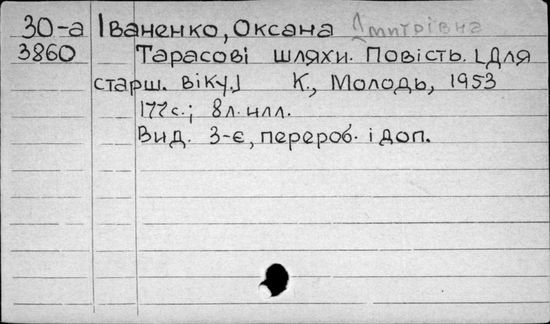 30-а Іваненко, Оксана Дмитрівна
3860 Тарасові шляхи. Повість. [Для
старш. віку.] К., Молодь, 1953
177 с.; 8 л. илл.
Вид. 3-є, перероб. і доп.